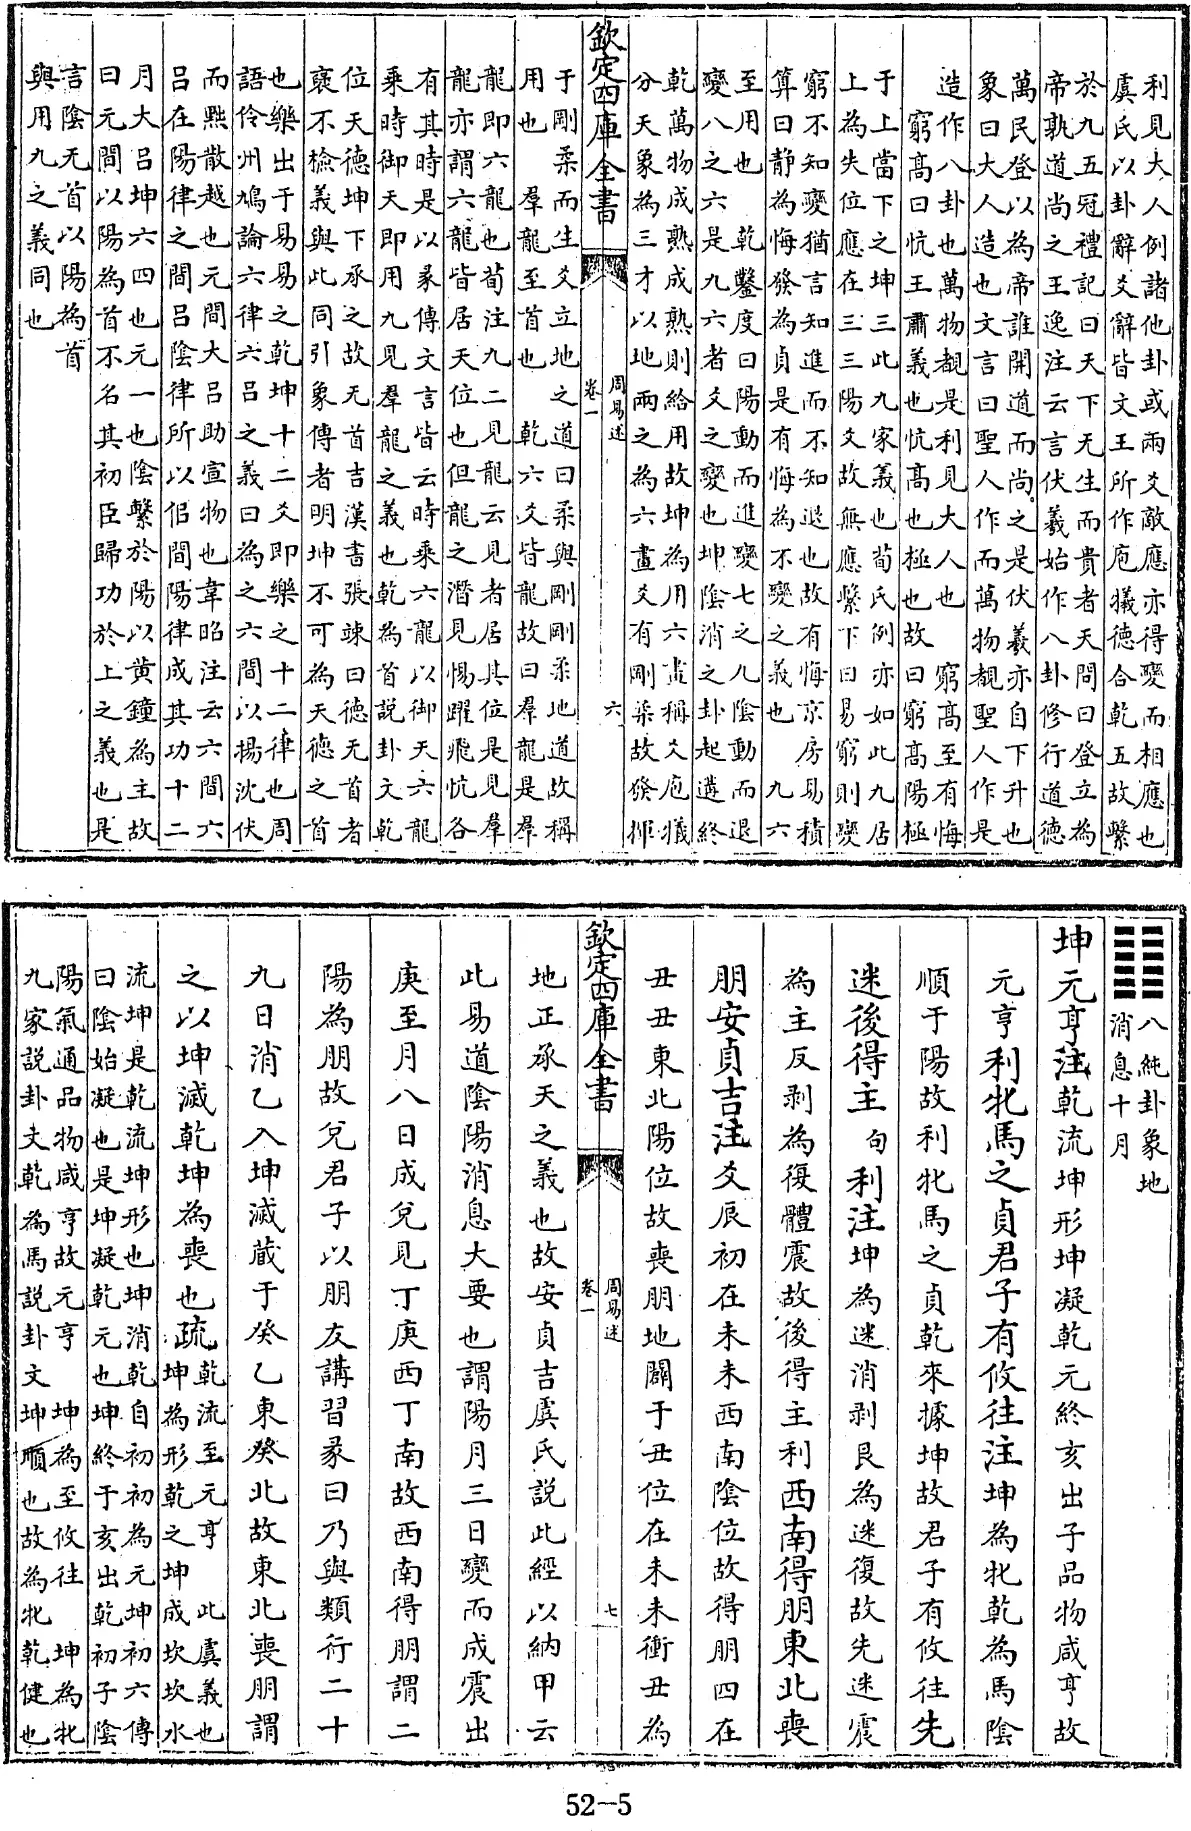 利見大人例諸他卦或兩爻敵應亦得變而相應也
虞氏以卦辭爻辭皆文王所作庖犧德合乾五故繫
於九五冠禮記曰天下无生而貴者天問曰登立為
帝孰道尚之王逸注云言伏羲始作八卦修行道德
萬民登以為帝誰開道而尚之是伏羲亦自下升也
象曰大人造也文言曰聖人作而萬物覩聖人作是
造作八卦也萬物覩是利見大人也　窮高至有悔
窮高曰忼王肅義也忼高也極也故曰窮高陽極
于上當下之坤三此九家義也荀氏例亦如此九居
上為失位應在三三陽爻故無應繫下曰易窮則變
窮不知變猶言知進而不知退也故有悔京房易積
算曰靜為悔發為貞是有悔為不變之義也　九六
至用也　乾鑿度曰陽動而進變七之九陰動而退
變八之六是九六者爻之變也坤陰消之卦起遘終
乾萬物成熟成熟則給用故坤為用六畫稱爻庖犧
分天象為三才以地兩之為六畫爻有剛柔故發揮
欽定四庫全書
周易述
卷一
六
于剛柔而生爻立地之道曰柔與剛剛柔地道故稱
用也　羣龍至首也　乾六爻皆龍故曰羣龍是羣
龍即六龍也荀注九二見龍云見者居其位是見羣
龍亦謂六龍皆居天位也但龍之潛見惕躍飛忼各
有其時是以彖傳文言皆云時乘六龍以御天六龍
乘時御天即用九見羣龍之義也乾為首說卦文乾
位天德坤下承之故无首吉漢書張竦曰德无首者
襃不檢義與此同引象傳者明坤不可為天德之首
也樂出于易易之乾坤十二爻即樂之十二律也周
語伶州鳩論六律六呂之義曰為之六間以揚沈伏
而黜散越也元間大呂助宣物也韋昭注云六間六
呂在陽律之間呂陰律所以侶間陽律成其功十二
月大呂坤六四也元一也陰繫於陽以黃鐘為主故
曰元間以陽為首不名其初臣歸功於上之義也是
言陰无首以陽為首
與用九之義同也
八純卦象地
消息十月
坤元亨注乾流坤形坤凝乾元終亥出子品物咸亨故
元亨利牝馬之貞君子有攸往注坤為牝乾為馬陰
順于陽故利牝馬之貞乾來據坤故君子有攸往先
迷後得主句利注坤為迷消剥艮為迷復故先迷震
為主反剥為復體震故後得主利西南得朋東北喪
朋安貞吉注爻辰初在未未西南陰位故得朋四在
丑丑東北陽位故喪朋地闢于丑位在未未衝丑為
欽定四庫全書
周易述
卷一
七
地正承天之義也故安貞吉虞氏說此經以納甲云
此易道陰陽消息大要也謂陽月三日變而成震出
庚至月八日成兌見丁庚西丁南故西南得朋謂二
陽為朋故兌君子以朋友講習彖曰乃與類行二十
九日消乙入坤滅藏于癸乙東癸北故東北喪朋謂
之以坤滅乾坤為喪也疏乾流至元亨　此虞義也
坤為形乾之坤成坎坎水
流坤是乾流坤形也坤消乾自初初為元坤初六傳
曰陰始凝也是坤凝乾元也坤終于亥出乾初子陰
陽氣通品物咸亨故元亨　坤為至攸往　坤為牝
九家說卦文乾為馬說卦文坤順也故為牝乾健也
52-5